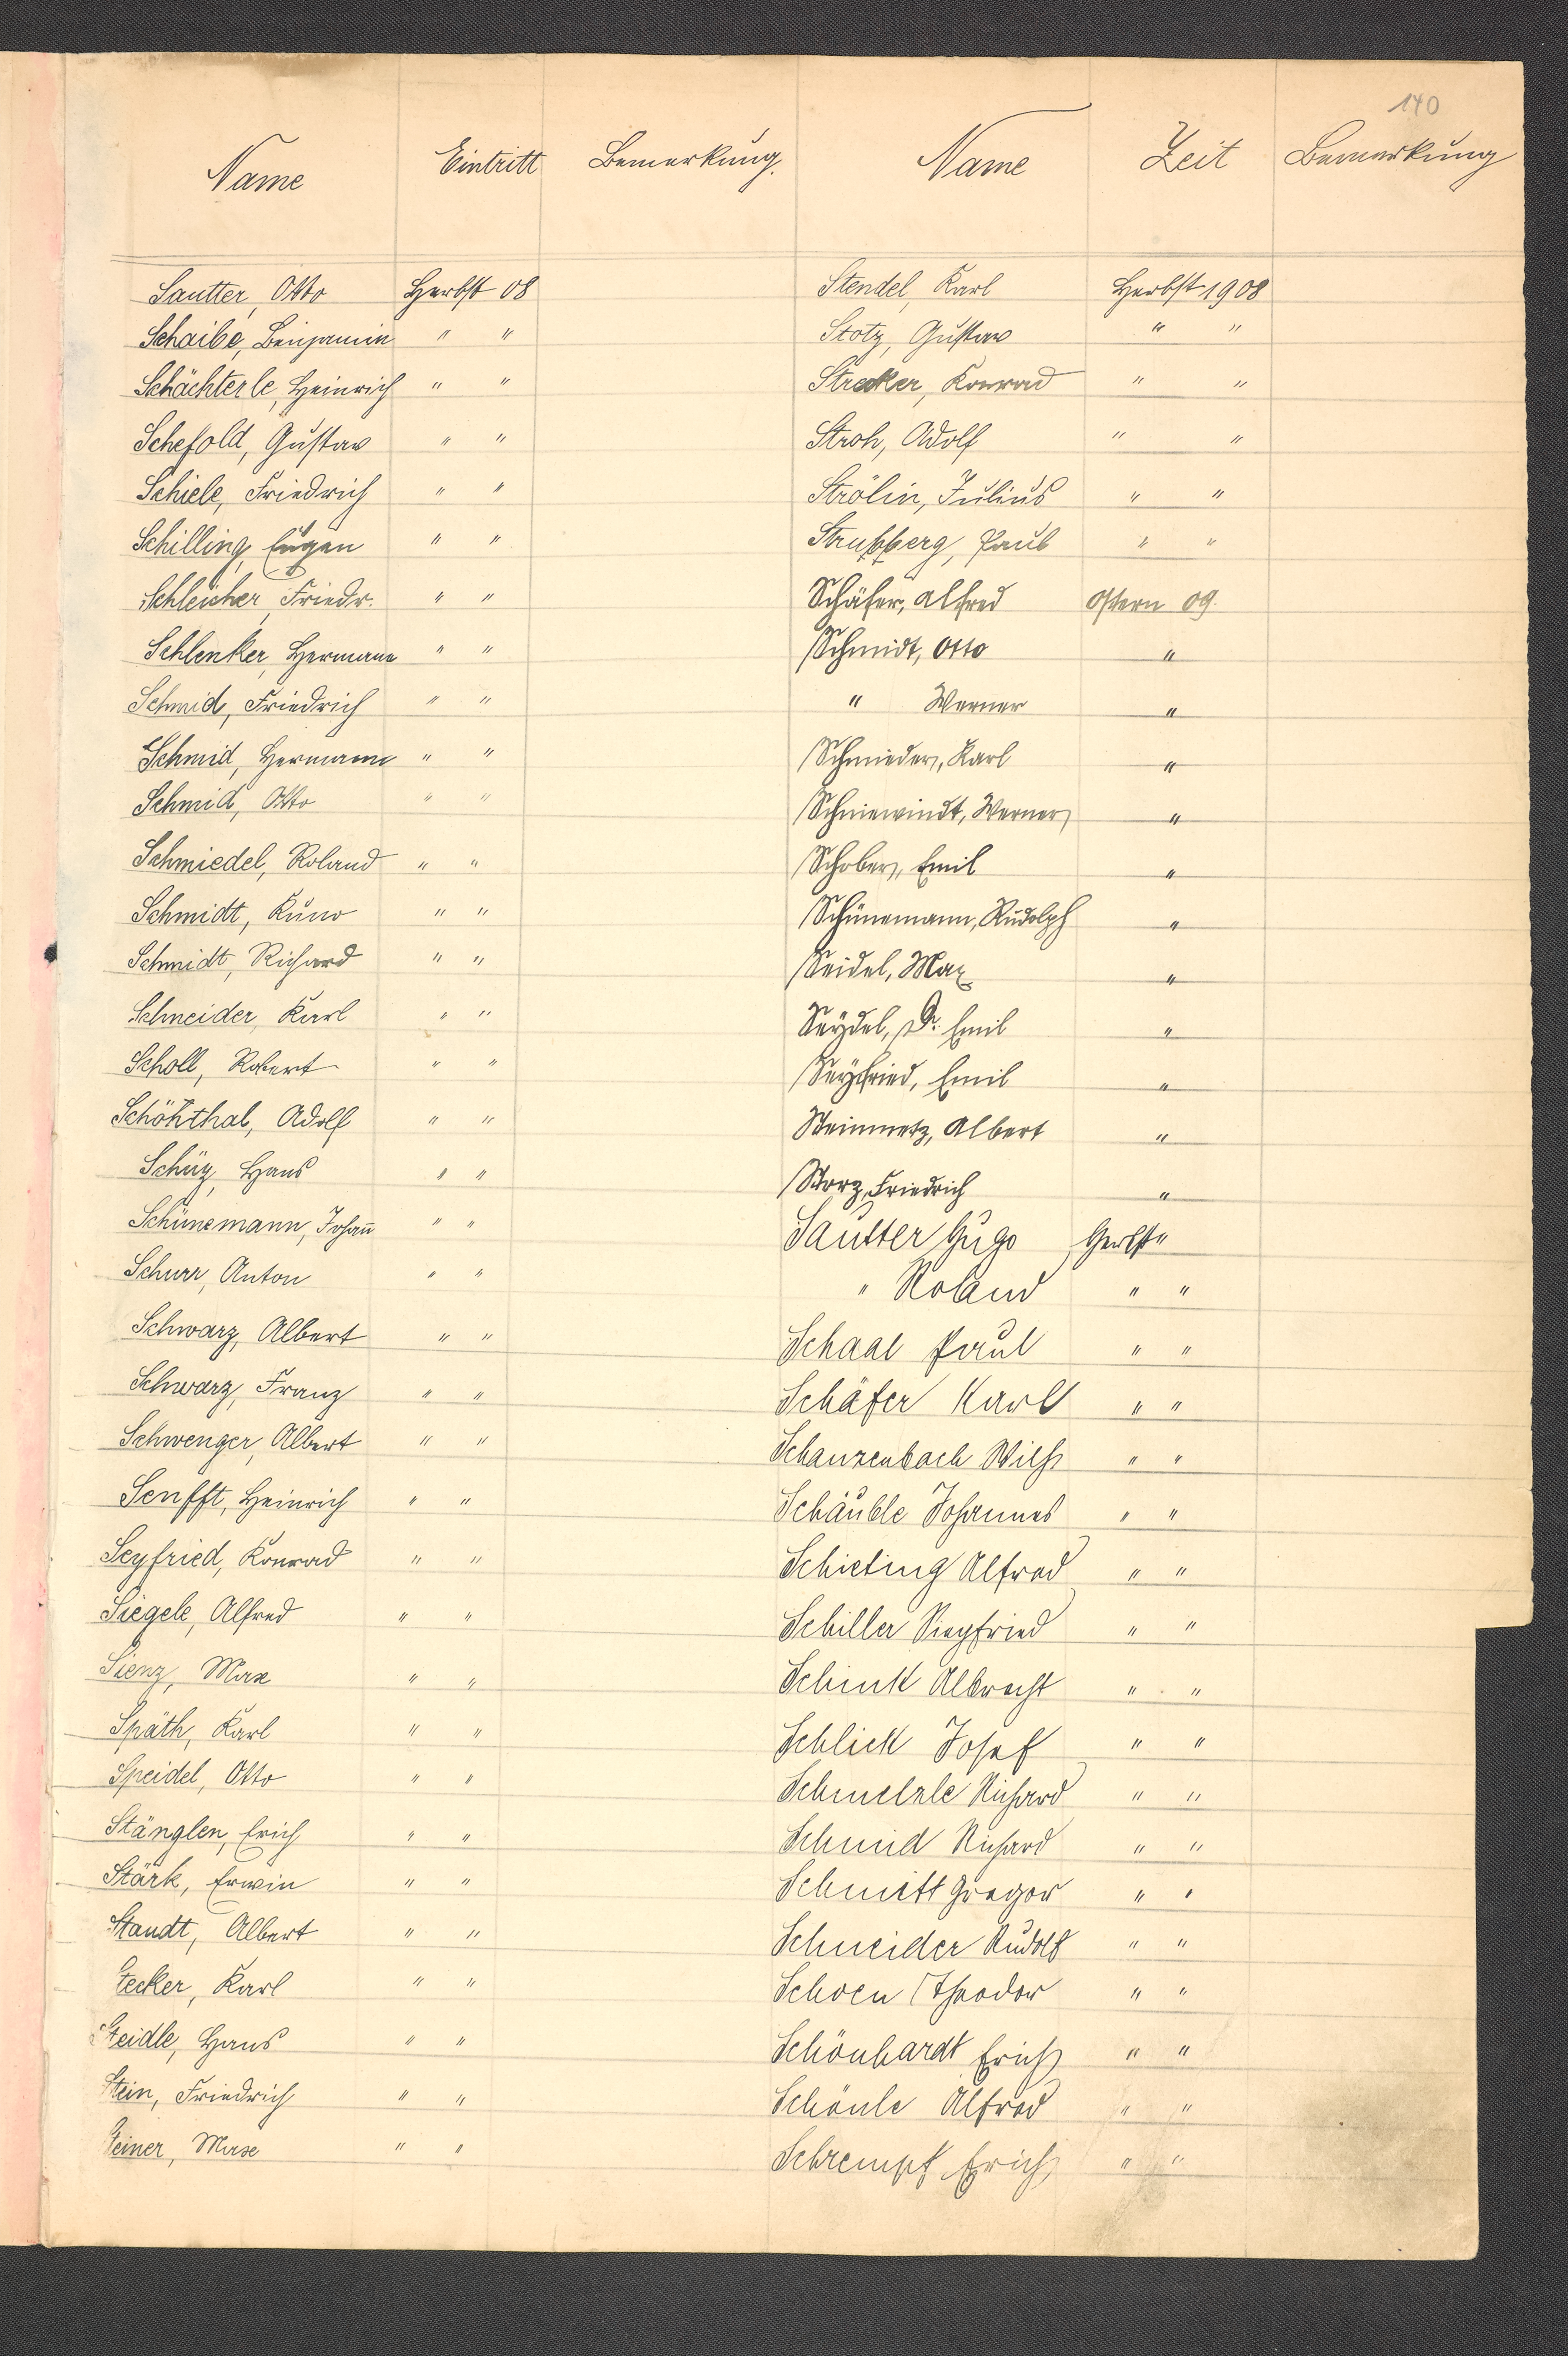 140
Name Eintritt Bemerkung. Name Zeit Bemerkung
Sautter, Otto Herbst 08
Schaibe, Benjamin " "
Schächterle, Heinrich " "
Schefold, Gustav " "
Schiele, Friedrich " "
Schilling, Eugen " "
Schleicher, Friedr. " "
Schlenker, Hermann " "
Schmid, Friedrich " "
Schmid, Hermann " "
Schmid, Otto " "
Schmiedel, Roland " "
Schmidt, Kuno " "
Schmidt, Richard " "
Schneider, Karl " "
Scholl, Robert " "
Schönthal, Adolf " "
Schüz, Hans " "
Schünemann, Johann̅ " "
Schurr, Anton " "
Schwarz, Albert " "
Schwarz, Franz " "
Schwenger, Albert " "
Senfft, Heinrich " "
Seyfried, Konrad " "
Siegele, Alfred " "
Sienz, Max " "
Späth, Karl " "
Speidel, Otto " "
Stänglen, Erich " "
Stärk, Erwin " "
Staudt, Albert " "
Stecker, Karl " "
Steidle, Hans " "
Stein, Friedrich " "
Steiner, Max " "
Stendel, Karl Herbst 1908
Stotz, Gustav " "
Strecker, Konrad " "
Stroh, Adolf " "
Strölin, Julius " "
Strubberg, Paul " "
Schäfer, Alfred Ostern 09.
Schmidt, Otto "
" Werner "
Schmieder, Karl "
Schniewindt, Werner "
Schober, Emil "
Schünemann, Rudolph "
Seidel, Max "
Seydel, Dr. Emil "
Seyfried, Emil "
Steinmetz, Albert "
Storz, Friedrich "
Sautter Hugo Herbst "
" Roland " "
Schaal Paul " "
Schäfer Karl " "
Schanzenbach Wilh " "
Schäuble Johannes " "
Schieting Alfred " "
Schiller Siegfried " "
Schink Albrecht " "
Schlick Josef " "
Schmelzle Richard " "
Schmid Richard " "
Schmitt Gregor " "
Schneider Rudolf " "
Schoen Theodor " "
Schönhardt Erich " "
Schönle Alfred " "
Schrempf Erich " "